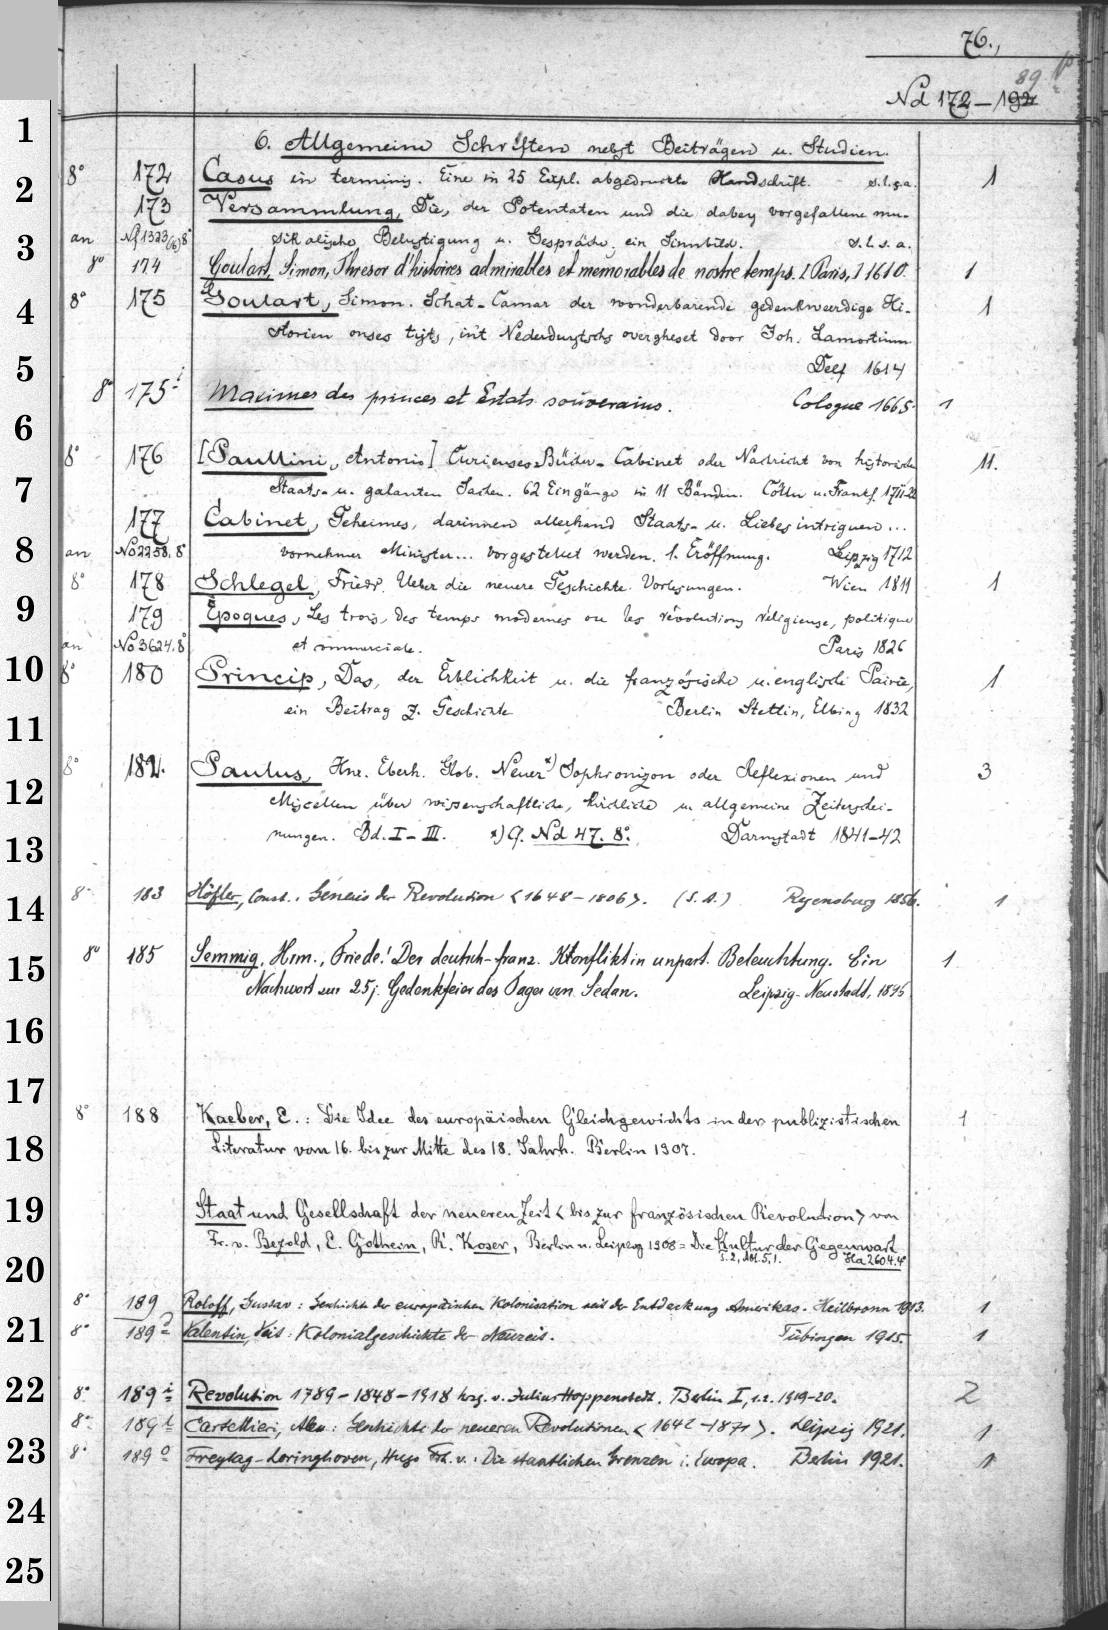 76.,
89
Nd 172–192
1
6. Allgemeine Schriften nebst Beiträgen u. Studien.
2
8° 172 Casus in terminis. Eine in 25 Expl. abgedruckte Handschrift. s.l.e.a. 1
173 Versammlung, Die, der Potentaten und die dabey vorgefallene mu-
3
an Nf 1323 (6) 8° sikalische Belustigung u. Gespräche, ein Sinnbild. s.l.e.a.
8° 174 Goulart, Simon, Thresor d'histoires admirables et memorables de nostre temps. [Paris,] 1610. 1
4
8° 175 Goulart, Simon. Schat-Camer der wonderbarende gedenkweerdige Hi-
storien onses tijts, int Nederduytschs overgheset door Joh. Lamortium 1
5
Delf 1614
8° 175 i Maximes des princes et Estats souverains. Cologne 1665. 1
6
8° 176 [Paullini, Antonio] Curieuses Bücher-Cabinet oder Nachricht von historische 11.
7
Staats- u. galanten Sachen. 62 Eingänge in 11 Bänden. Cölln u. Frankf. 1711-22
177 Cabinet, Geheimes, darinnen allerhand Staats- u. Liebesintriguen...
8
an No 2258. 8° vornehmer Minister... vorgestellet werden. 1. Eröffnung. Leipzig 1712
8° 178 Schlegel, Friedr. Ueber die neuere Geschichte. Vorlesungen. Wien 1811 1
9
179 Époques, Les trois, des temps modernes ou les révolutions religieuse, politique
an No 3624. 8° et commerciale. Paris 1826
10
8° 180 Princip, Das, der Erblichkeit u. die französische u. englische Pairie, 1
11
ein Beitrag z. Geschichte Berlin Stettin, Elbing 1832
12
8° 182. Paulus, Hnr. Eberh. Glob. Neuer *) Sophronizon oder Reflexionen und 3
Miscellen über wissenschaftliche, kirchliche u. allgemeine Zeiterschei-
13
nungen. Bd. I–III. *) cf. Nd 47. 8°. Darmstadt 1841–42
14
8° 183 Höfler, Const., Genesis der Revolution <1648–1806>. (S. A.) Regensburg 1856. 1
15
8° 185 Semmig, Hrm., Friede! Der deutsch-franz. Konflikt in unpart. Beleuchtung. Ein 1
Nachwort zur 25j. Gedenkfeier des Tages von Sedan. Leipzig-Neustadt, 1895
16
17
8° 188 Kaeber, E.: Die Idee des europäischen Gleichgewichts in der publizistischen 1
18
Literatur vom 16. bis zur Mitte des 18. Jahrh. Berlin 1907.
19
Staat und Gesellschaft der neueren Zeit <bis zur französischen Revolution> von
Fr. v. Bezold, E. Gothein, R. Koser, Berlin u. Leipzig 1908 = Die Kultur der Gegenwart
20
T. 2, Abt. 5, 1. Ha 2604. 4°
8° 189 Roloff, Gustav: Geschichte der europäischen Kolonisation seit der Entdeckung Amerikas. Heilbronn 1913. 1
21
8° 189 a Valentin, Veit: Kolonialgeschichte der Neuzeit. Tübingen 1915. 1
22
8° 189 i Revolution 1789–1848–1918 hrg. v. Julius Hoppenstedt. Berlin I, 1.2. 1919–20. 2
8° 189 l Cartellieri, Alex.: Geschichte der neueren Revolutionen <1642–1871>. Leipzig 1921. 1
23
8° 189 o Freytag-Loringhoven, Hugo Frh. v.: Die staatlichen Grenzen i. Europa. Berlin 1921. 1
24
25